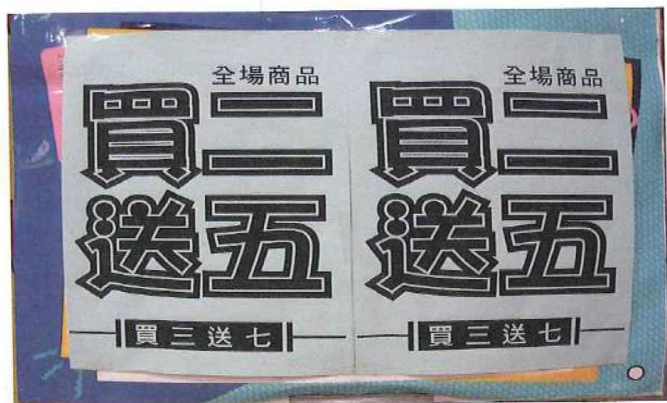 全場商品
買二
送五
買三送七
全場商品
買二
送五
買三送七